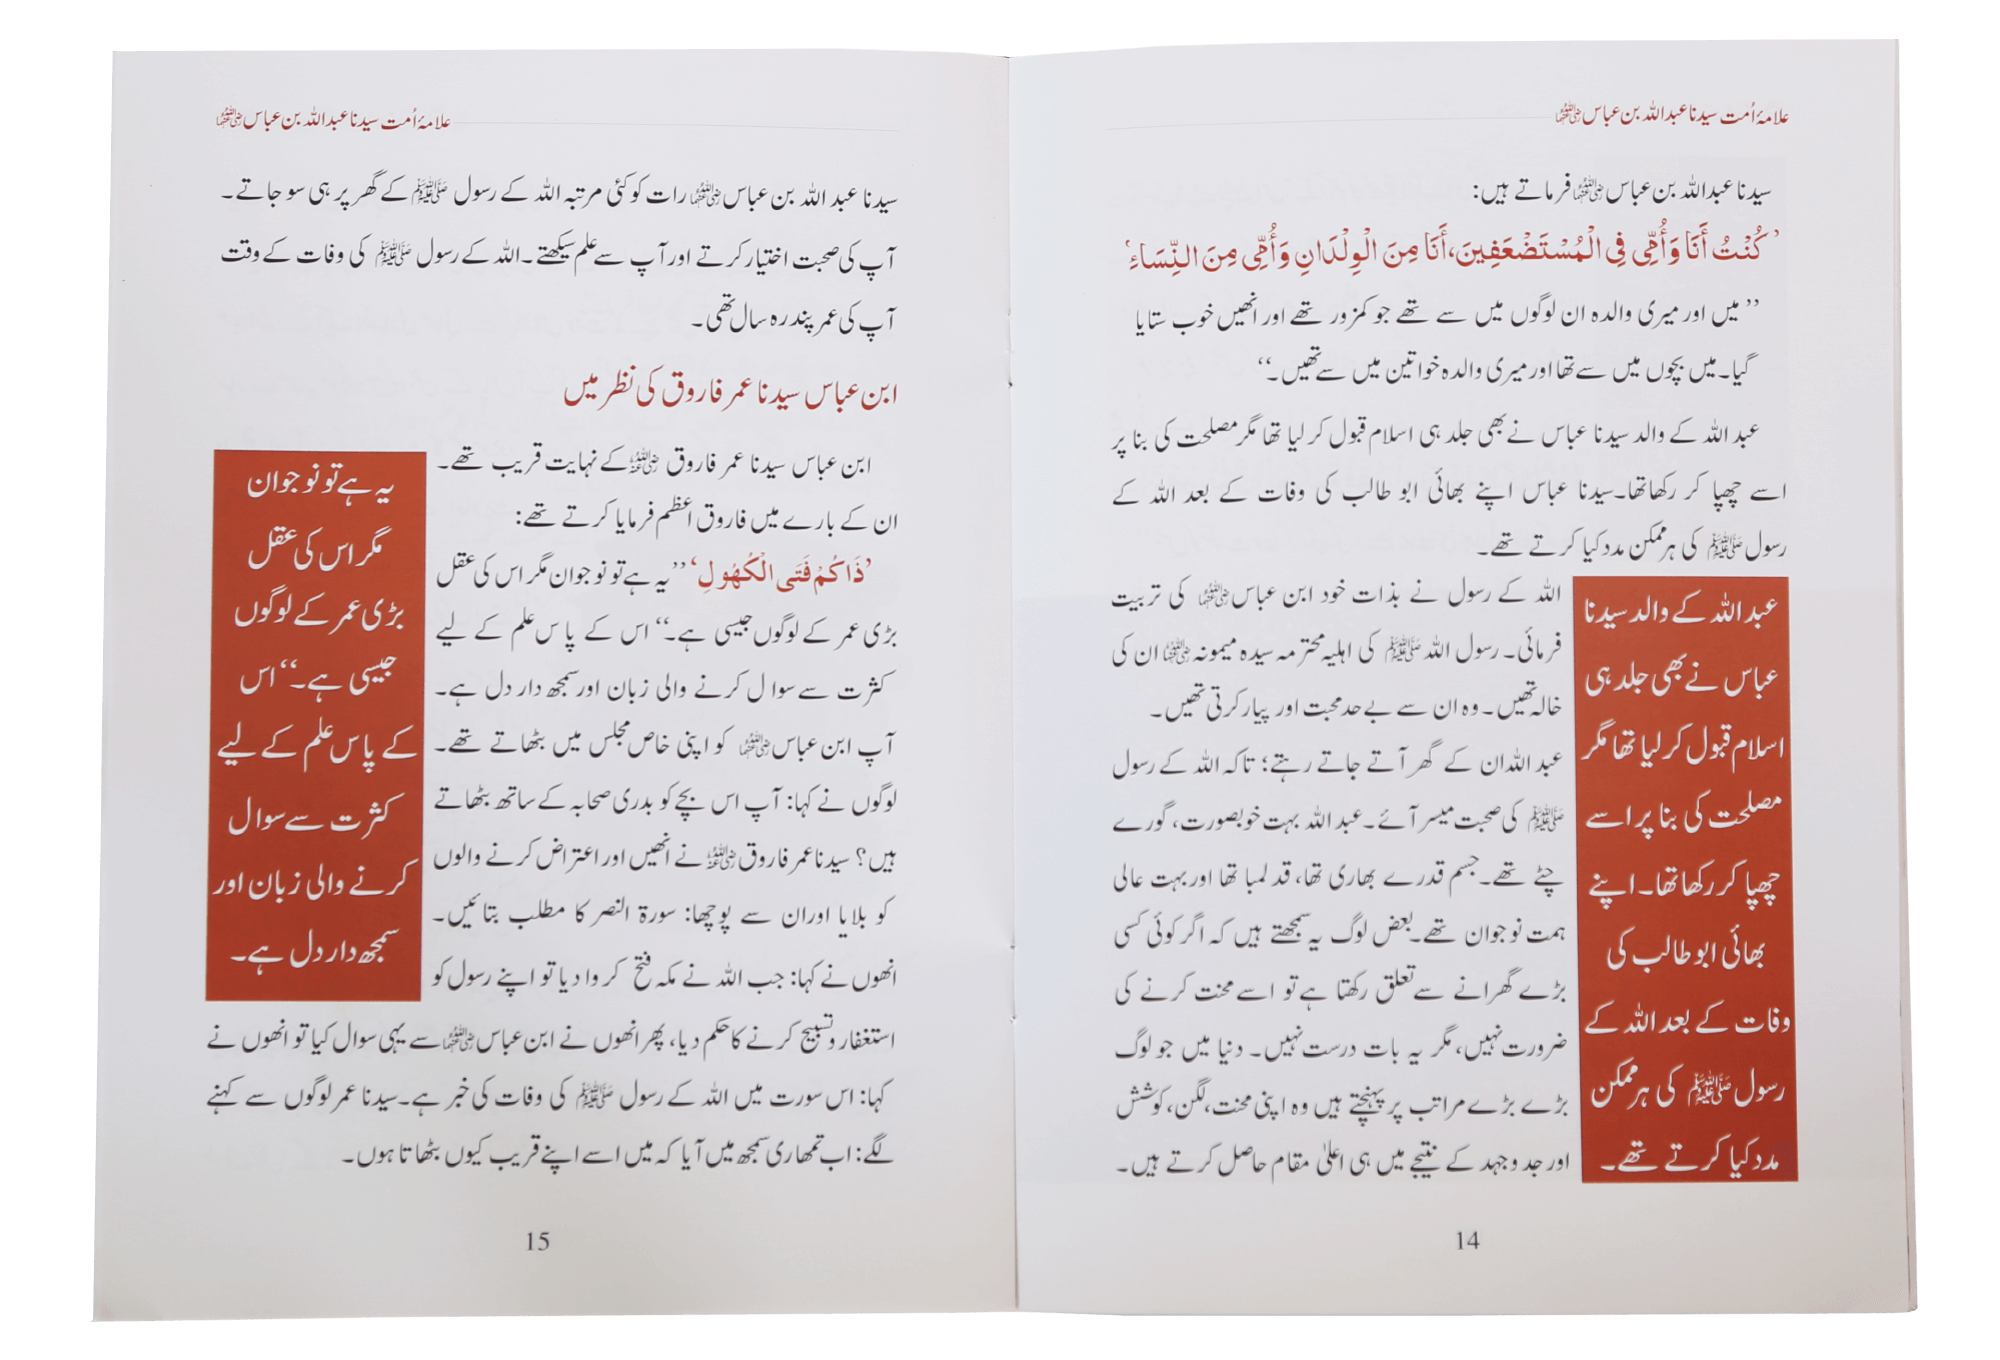 علامۂ اُمت سیدنا عبداللہ بن عباس رضی اللہ عنہما
سیدنا عبداللہ بن عباس رضی اللہ عنہما فرماتے ہیں:
’كُنْتُ أَنَا وَأُمِّي فِي الْمُسْتَضْعَفِينَ، أَنَا مِنَ الْوِلْدَانِ وَأُمِّي مِنَ النِّسَاءِ‘
’’میں اور میری والدہ ان لوگوں میں سے تھے جو کمزور تھے اور انھیں خوب ستایا
گیا۔ میں بچوں میں سے تھا اور میری والدہ خواتین میں سے تھیں۔‘‘
عبداللہ کے والد سیدنا عباس نے بھی جلد ہی اسلام قبول کر لیا تھا مگر مصلحت کی بنا پر
اسے چھپا کر رکھا تھا۔ سیدنا عباس اپنے بھائی ابو طالب کی وفات کے بعد اللہ کے
رسول ﷺ کی ہر ممکن مدد کیا کرتے تھے۔
عبداللہ کے والد سیدنا
عباس نے بھی جلد ہی
اسلام قبول کر لیا تھا مگر
مصلحت کی بنا پر اسے
چھپا کر رکھا تھا۔ اپنے
بھائی ابو طالب کی
وفات کے بعد اللہ کے
رسول ﷺ کی ہر ممکن
مدد کیا کرتے تھے۔
اللہ کے رسول نے بذات خود ابن عباس رضی اللہ عنہما کی تربیت
فرمائی۔ رسول اللہ ﷺ کی اہلیہ محترمہ سیدہ میمونہ رضی اللہ عنہا ان کی
خالہ تھیں۔ وہ ان سے بے حد محبت اور پیار کرتی تھیں۔
عبداللہ ان کے گھر آتے جاتے رہتے؛ تاکہ اللہ کے رسول
ﷺ کی صحبت میسر آئے۔ عبداللہ بہت خوبصورت، گورے
چٹے تھے۔ جسم قدرے بھاری تھا، قد لمبا تھا اور بہت عالی
ہمت نوجوان تھے۔ بعض لوگ یہ سمجھتے ہیں کہ اگر کوئی کسی
بڑے گھرانے سے تعلق رکھتا ہے تو اسے محنت کرنے کی
ضرورت نہیں، مگر یہ بات درست نہیں۔ دنیا میں جو لوگ
بڑے بڑے مراتب پر پہنچتے ہیں وہ اپنی محنت، لگن، کوشش
اور جدوجہد کے نتیجے میں ہی اعلیٰ مقام حاصل کرتے ہیں۔
14
علامۂ اُمت سیدنا عبداللہ بن عباس رضی اللہ عنہما
سیدنا عبد اللہ بن عباس رضی اللہ عنہما رات کو کئی مرتبہ اللہ کے رسول ﷺ کے گھر پر ہی سو جاتے۔
آپ کی صحبت اختیار کرتے اور آپ سے علم سیکھتے۔ اللہ کے رسول ﷺ کی وفات کے وقت
آپ کی عمر پندرہ سال تھی۔
ابن عباس سیدنا عمر فاروق کی نظر میں
ابن عباس سیدنا عمر فاروق رضی اللہ عنہ کے نہایت قریب تھے۔
ان کے بارے میں فاروق اعظم فرمایا کرتے تھے:
’ذَاكُمْ فَتَى الْكُهُولِ‘ ’’یہ ہے تو نوجوان مگر اس کی عقل
بڑی عمر کے لوگوں جیسی ہے۔‘‘ اس کے پاس علم کے لیے
کثرت سے سوال کرنے والی زبان اور سمجھ دار دل ہے۔
آپ ابن عباس رضی اللہ عنہما کو اپنی خاص مجلس میں بٹھاتے تھے۔
لوگوں نے کہا: آپ اس بچے کو بدری صحابہ کے ساتھ بٹھاتے
ہیں؟ سیدنا عمر فاروق رضی اللہ عنہ نے انھیں اور اعتراض کرنے والوں
کو بلایا اور ان سے پوچھا: سورۃ النصر کا مطلب بتائیں۔
انھوں نے کہا: جب اللہ نے مکہ فتح کروا دیا تو اپنے رسول کو
یہ ہے تو نوجوان
مگر اس کی عقل
بڑی عمر کے لوگوں
جیسی ہے۔‘‘ اس
کے پاس علم کے لیے
کثرت سے سوال
کرنے والی زبان اور
سمجھ دار دل ہے۔
استغفار و تسبیح کرنے کا حکم دیا، پھر انھوں نے ابن عباس رضی اللہ عنہما سے یہی سوال کیا تو انھوں نے
کہا: اس سورت میں اللہ کے رسول ﷺ کی وفات کی خبر ہے۔ سیدنا عمر لوگوں سے کہنے
لگے: اب تمھاری سمجھ میں آیا کہ میں اسے اپنے قریب کیوں بٹھاتا ہوں۔
15